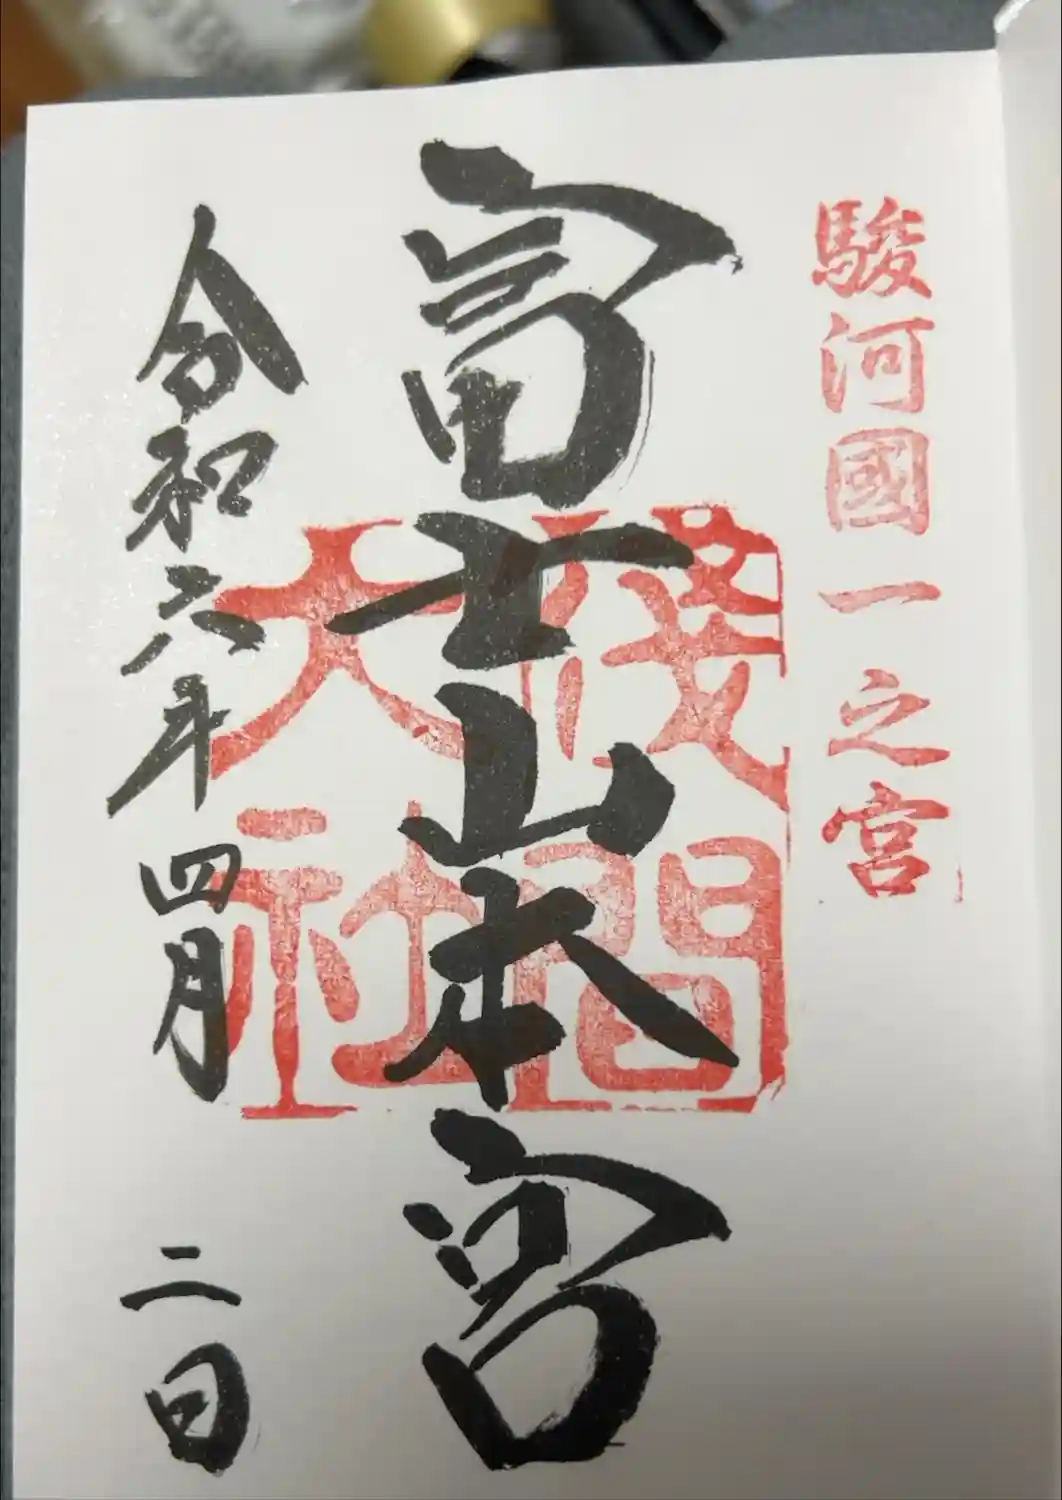 駿河國一之宮
富士山本宮
浅間
大社
令和六年四月二日